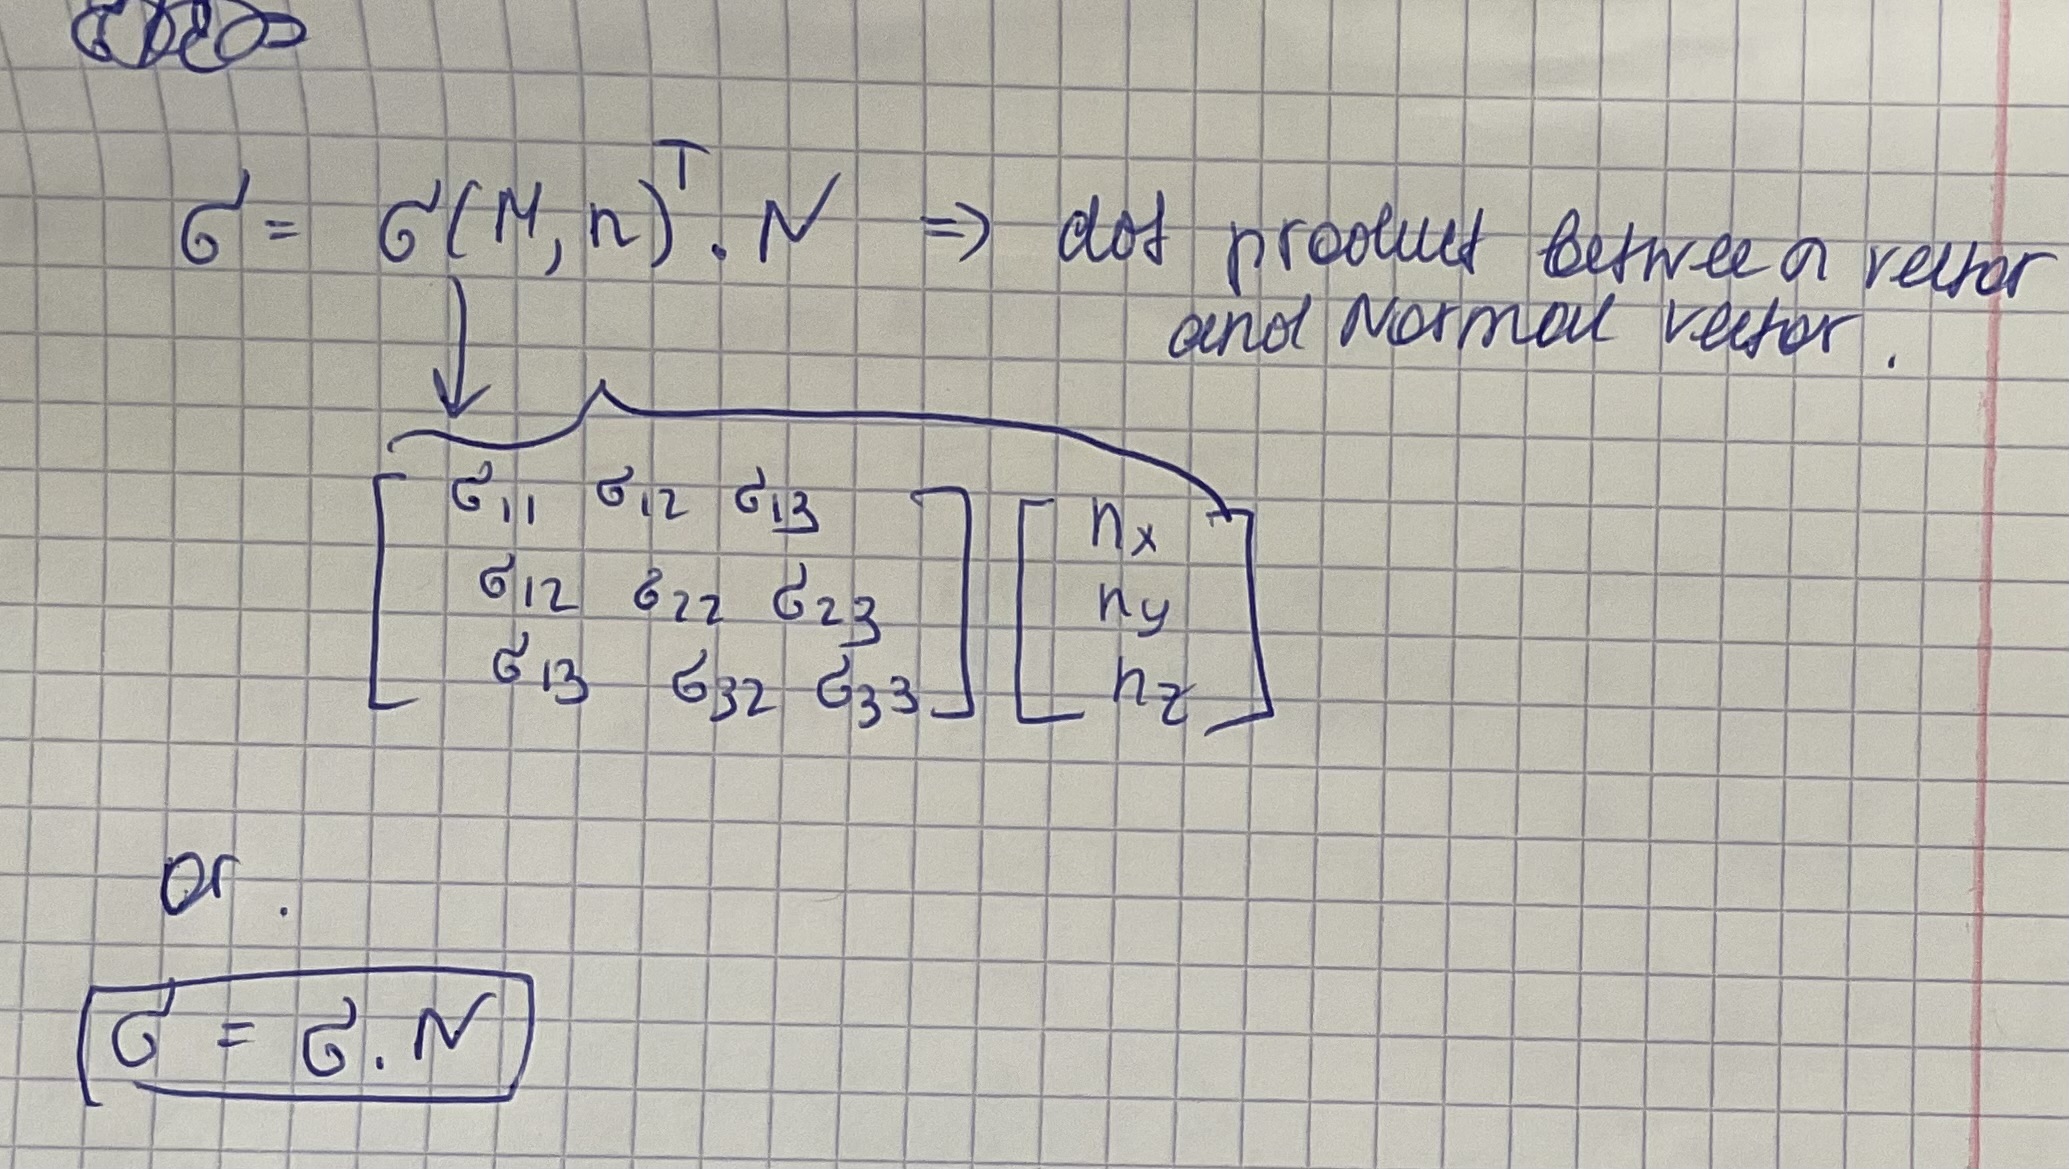 σ = σ(M, n)ᵀ . N ⇒ dot product between a vector
and Normal vector.
[ σ11 σ12 σ13 ] [ nx ]
[ σ12 σ22 σ23 ] [ ny ]
[ σ13 σ32 σ33 ] [ nz ]
or .
σ = σ . N